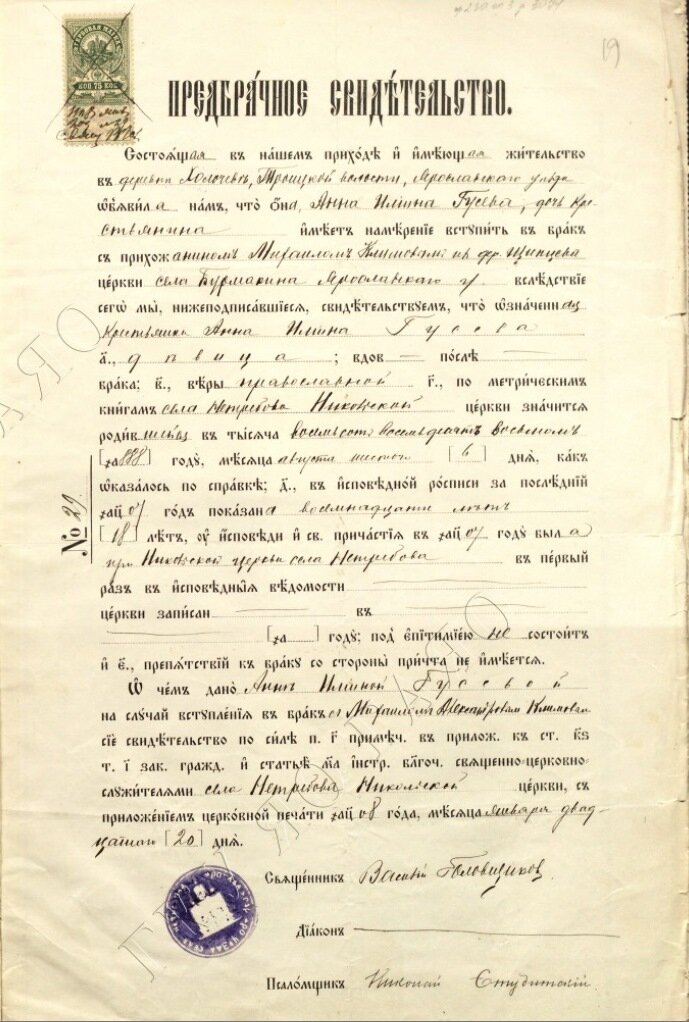 19
КОП. 75 КОП.
ПРЕДБРА́ЧНОЕ СВИДѢ́ТЕЛЬСТВО.
Состоѧ́щая въ на́шемъ прихо́дѣ и҆ и҆мѣ́ющая жи́тельство
въ деревнѣ Холочевѣ, Троицкой волости, Ярославскаго уѣзда
ѡ҆б̾ѧви́ла на́мъ, что̀ ѻ҆на̀, Анна Ильина Гусева, дочь кре-
стьянина имѣ́етъ намѣ́ренїе вступи́ть въ бра́къ
съ прихожаниномъ Михаиломъ Климовымъ дер. Щипцева
це́ркви села Бурмакина Ярославскаго у. вслѣ́дствїе
сегѡ̀ мы̀, нижеподписа́вшїесѧ, свидѣ́тельствуемъ, что̀ ѡ҆зна́ченная
крестьянка Анна Ильина Гусева
а҃., дѣвица; вдов — по́слѣ —
бра́ка; в҃., вѣ́ры православной г҃., по метри́ческимъ
кни́гамъ села Нетребова Никольской це́ркви зна́читсѧ
роди́вшеюся въ ты́сѧча восемьсотъ восемьдесятъ восьмомъ
[҂а888] го́дꙋ, мѣ́сѧца августа шестого [6] днѧ̀, ка́къ
ѡ҆каза́лось по спра́вкѣ; д҃., въ и҆сповѣ́дной ро́списи за послѣ́днїй
҂ац҃07 го́дъ пока́зана восемнадцати лѣтъ
[18] лѣ́тъ, ᲂу҆ и҆́сповѣди и҆ св. прича́стїѧ въ ҂ац҃07 годꙋ̀ была
при Никольской церкви села Нетребова въ пе́рвый
ра́зъ въ и҆сповѣ́дныѧ вѣ́домости —
це́ркви запи́сан — въ —
— [҂а] го́дꙋ; под̾ е҆питимі́ею не состои́тъ
и҆ є҃., препѧ́тствїй къ бра́кꙋ со стороны̀ при́чта не и҆мѣ́етсѧ.
Ѡ҆ че́мъ дано̀ Аннѣ Ильиной Гусевой
на слꙋ́чай вступле́нїѧ въ бра́къ съ Михаиломъ Александровымъ Климовымъ
сїѐ свидѣ́тельство по си́лѣ п. г҃ примѣ́ч. въ прилож. къ ст. к҃ѕ
т. і҃ зак. гражд. и҆ статьѣ̀ м҃а и҆нстр. бл҃гоч. свѧще́нно-церко́вно-
слꙋжи́телѧми села Нетребова Никольской це́ркви, съ
приложе́нїемъ церко́вной печа́ти ҂ац҃08 го́да, мѣ́сѧца января двад-
цатаго [20] днѧ̀.
№ 29
Свѧще́нникъ Василій Головщиковъ
Дїа́конъ —
Псало́мщикъ Николай Студитскій
ГКУ ЯО ГАЯО